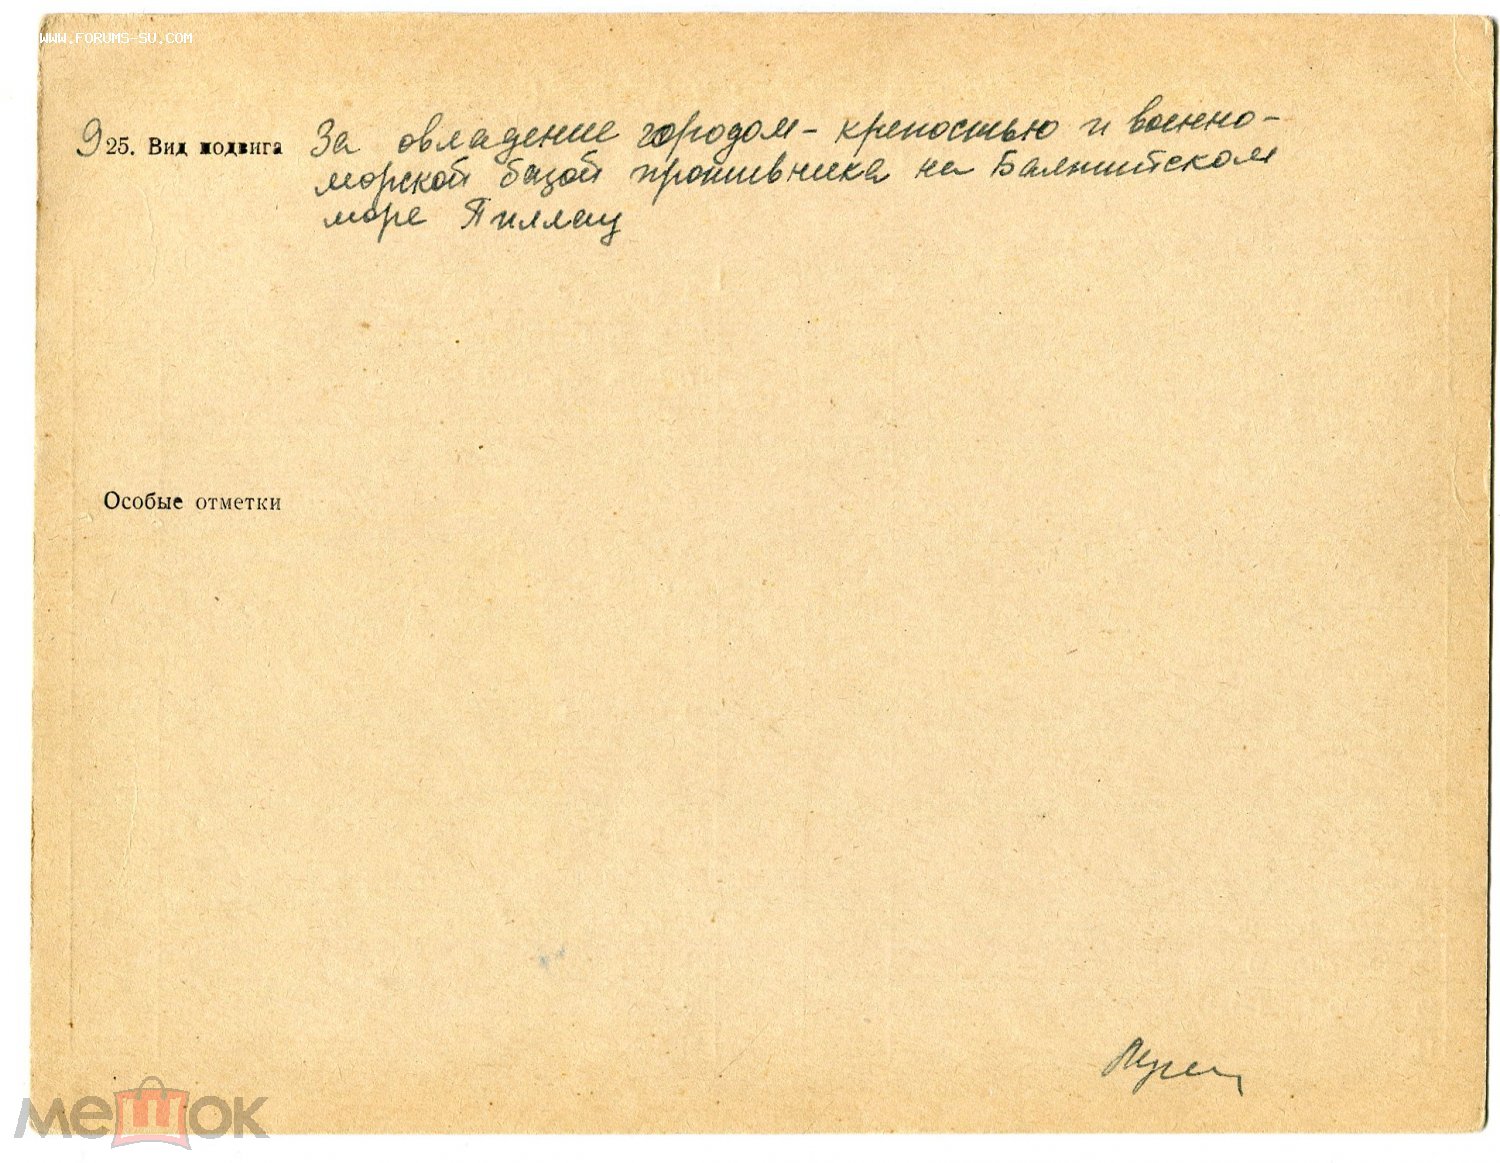 WWW.FORUMS-SU.COM
925. Вид подвига За овладение городом-крепостью и военно-
морской базой противника на Балтийском
море Пиллау
Особые отметки
мешок